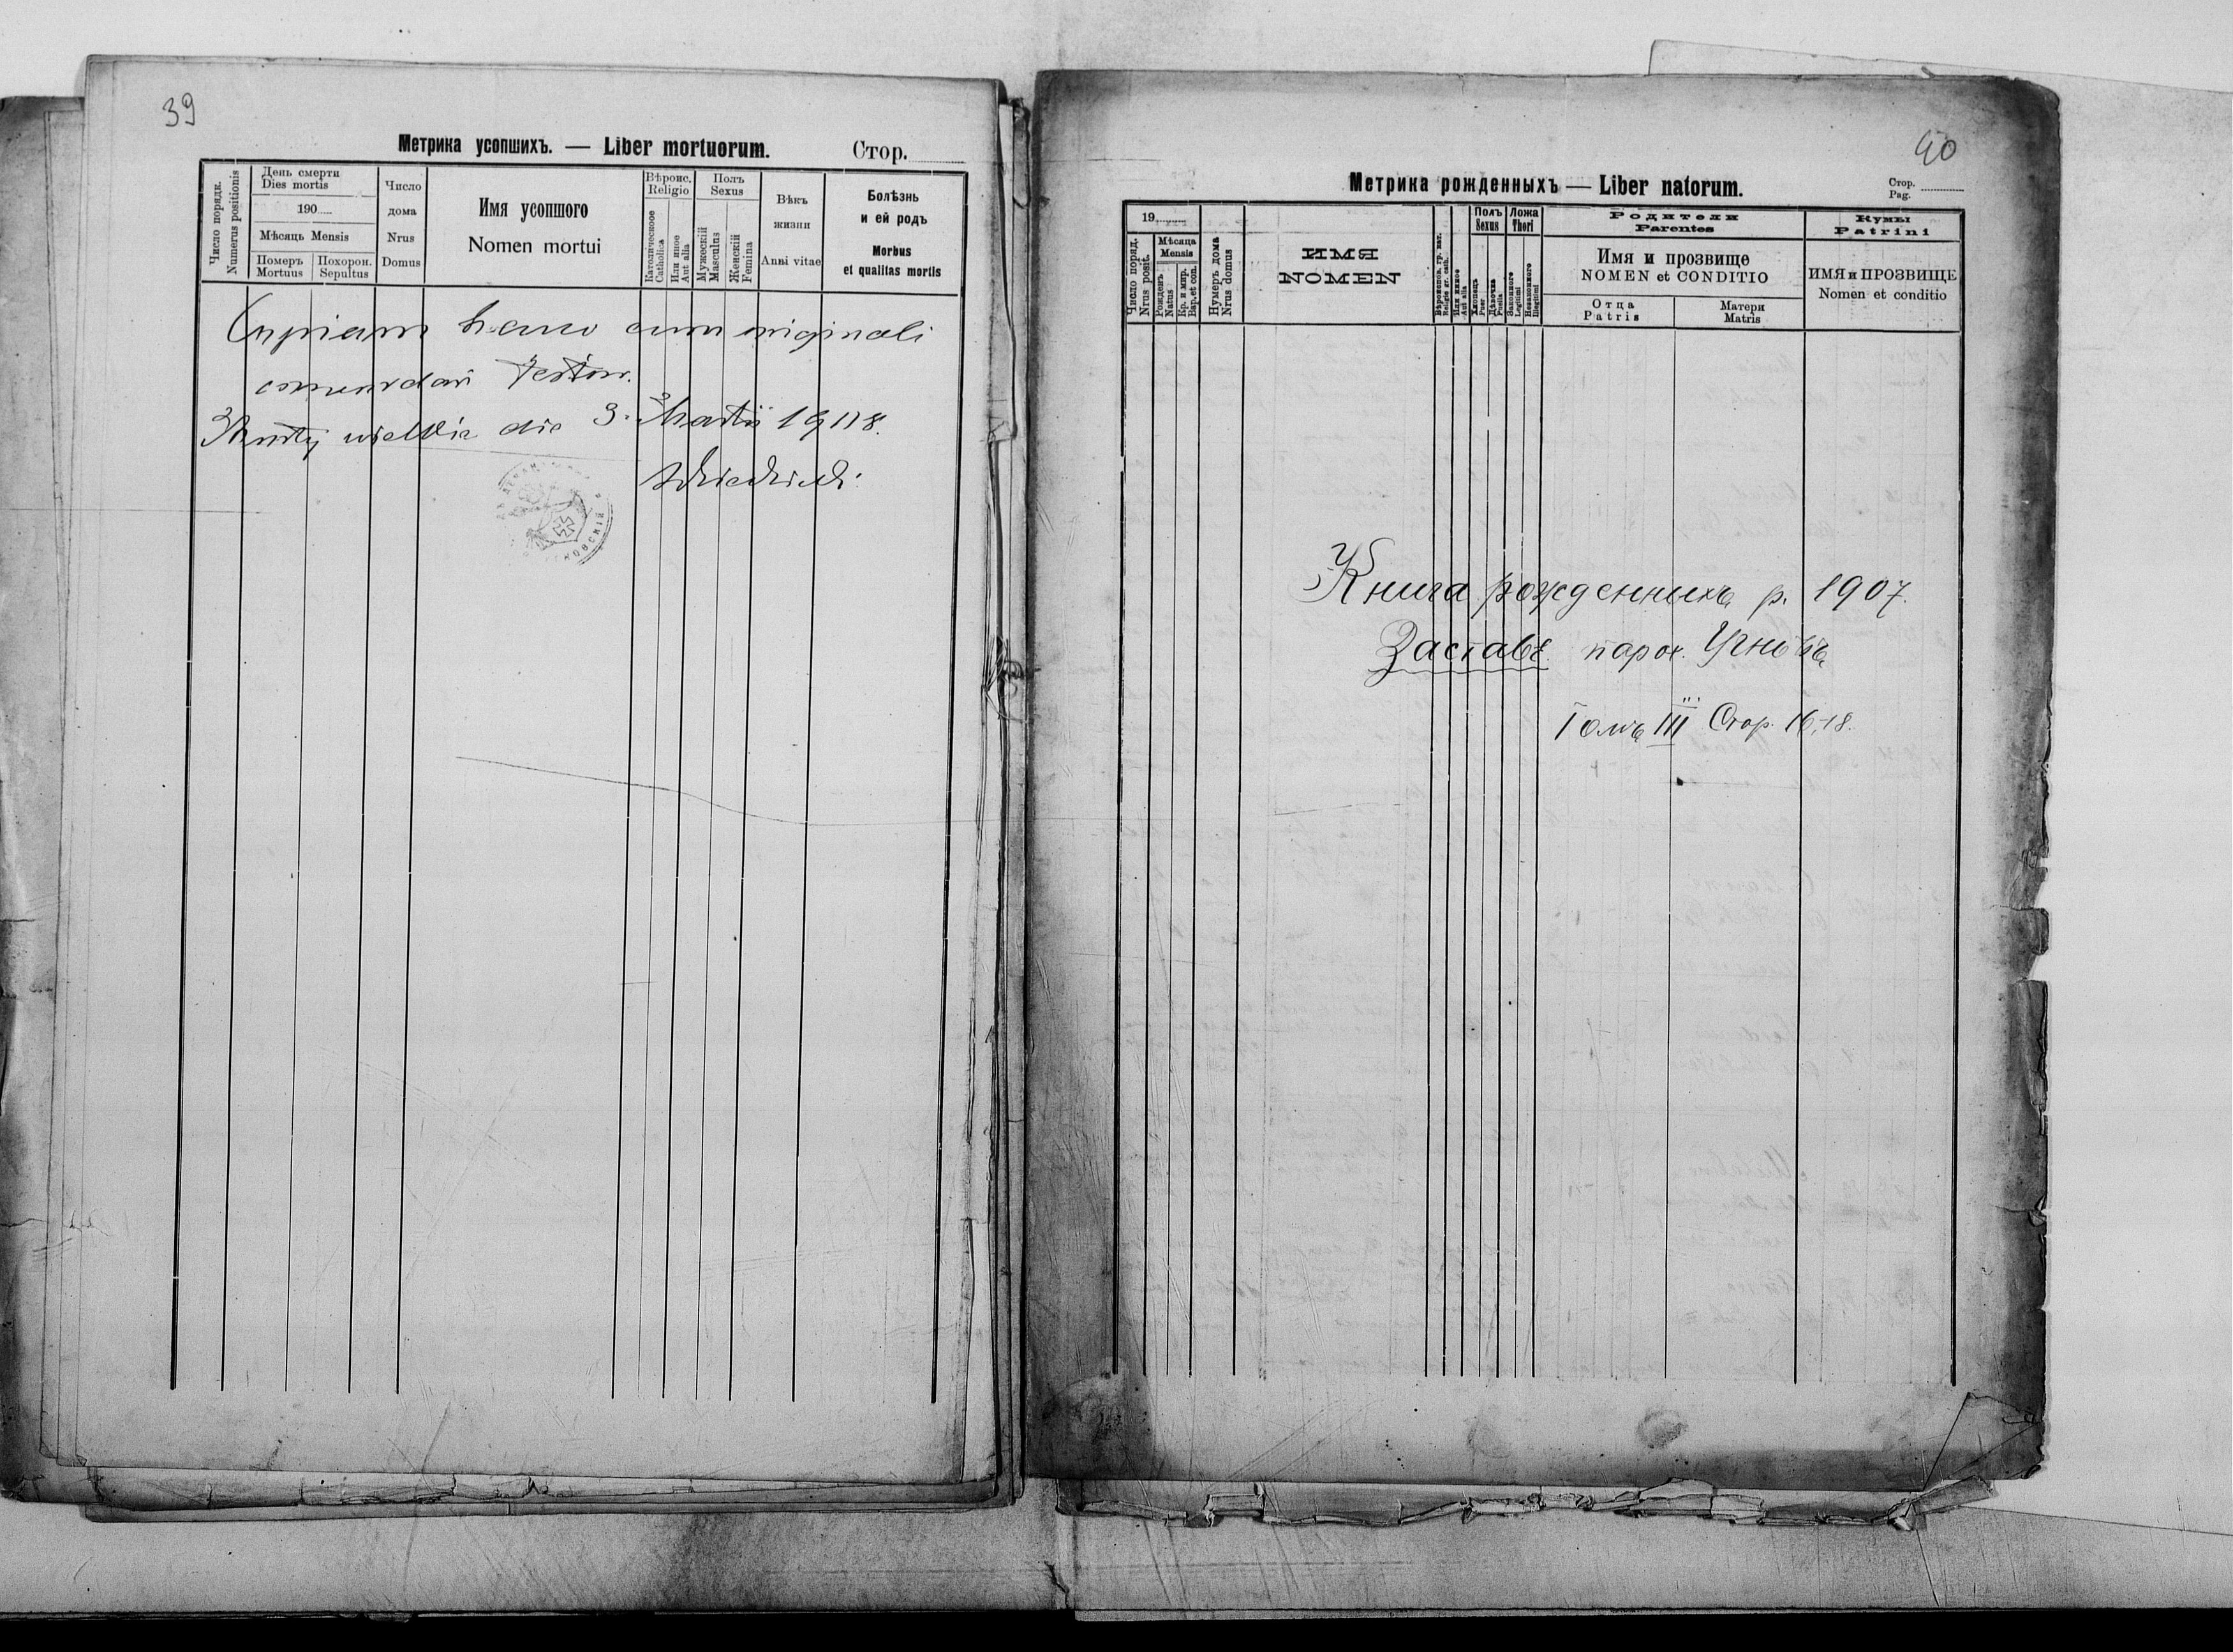 39
Метрика усопшихъ. — Liber mortuorum. Стор.
Число порядк.
Numerus positionis
День смерти
Dies mortis
190
Мѣсяць Mensis
Померъ
Mortuus
Похорон.
Sepultus
Число
дома
Nrus
Domus
Имя усопшого
Nomen mortui
Вѣроис.
Religio
Католическоое
Catholica
Или иное
Aut alia
Полъ
Sexus
Мужоскій
Masculus
Женскій
Femina
Вѣкъ
жизни
Anni vitae
Болѣзнь
и ей родъ
Morbus
et qualitas mortis
Copiam hanc cum originali
testor.
die 3. Martii 1908.
40
Метрика рожденныхъ — Liber natorum.
Стор.
Pag.
19
Число поряд.
Nrus posit.
Мѣсяца
Mensis
Рожденъ
Natus
Кр. и мѵр.
Bap. et con.
Нумеръ дома
Nrus domus
ИМЯ
NOMEN
Вѣроиспов. гр. кат.
Religio gr. cath.
Или иное
Aut alia
Полъ
Sexus
Хлопець
Puer
Дѣвочка
Puella
Ложа
Thori
Законного
Legitimi
Незаконного
Illegitimi
Родители
Parentes
Имя и прозвище
NOMEN et CONDITIO
Отца
Patris
Матери
Matris
Кумы
Patrini
ИМЯ и ПРОЗВИЩЕ
Nomen et conditio
Книга рожденныхъ р. 1907.
Заставе парох. Угнѣвъ
Томъ III Стор. 16,18.